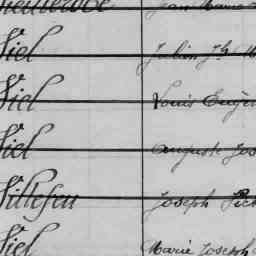 Viel Julien Jh M
Viel Louis Eugèn
Viel Auguste Jos
Villefeu Joseph Pier
Viel Marie Joseph